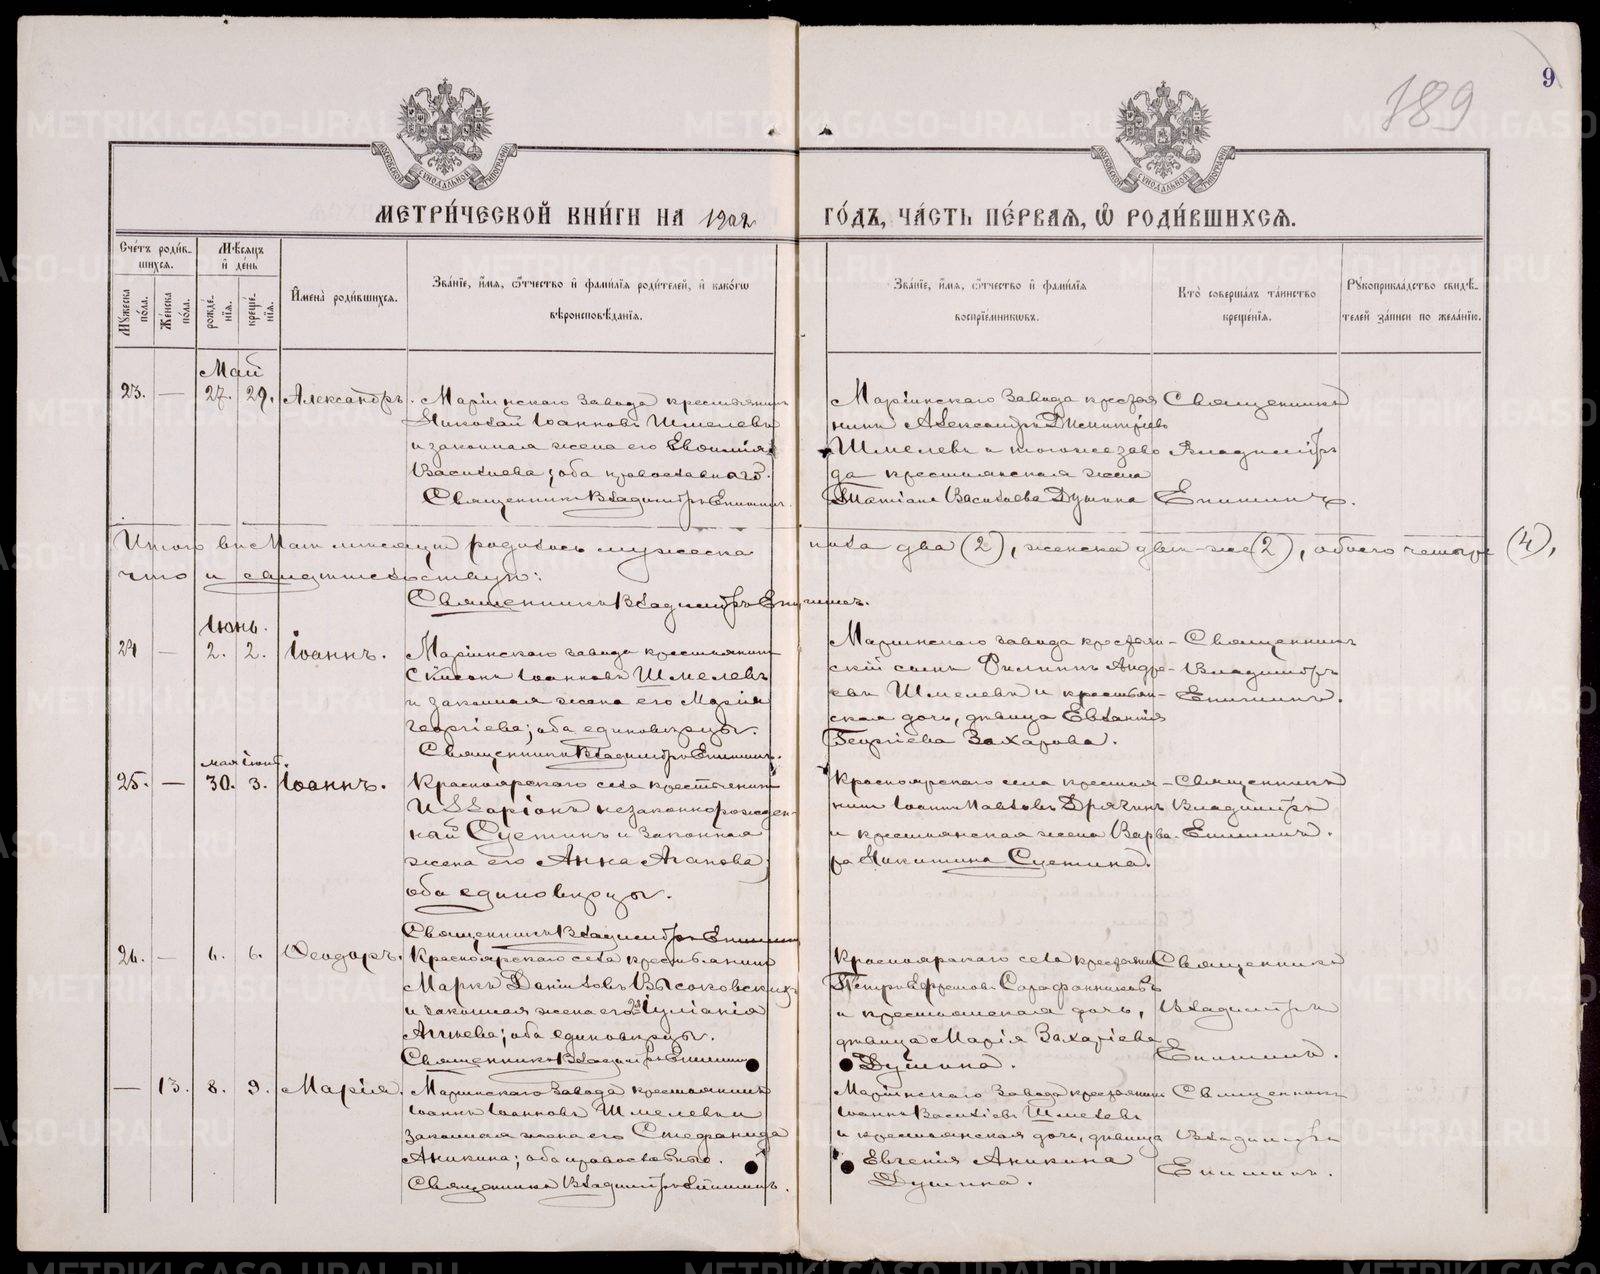 9
189
МЕТРИ́ЧЕСКОЙ КНИ́ГИ НА 1902 ГО́ДЪ, ЧА́СТЬ ПЕ́РВАЯ, Ѿ РОДИ́ВШИХСЯ.
Сче́тъ роди́в-
шихся.
Мѣ́сяцъ
и де́нь
Мꙋ́жеска
по́ла.
Же́нска
по́ла.
рожде́-
нїя.
креще́-
нїя.
И҆мена̀ роди́вшихся.
Зва́нїе, и҆́мя, ѻ҆́тчество и҆ фами́лїя роди́телей, и҆ како́гѡ
вѣроисповѣ́данїя.
Зва́нїе, и҆́мя, ѻ҆́тчество и҆ фами́лїя
воспрїе́мникѡвъ.
Кто̀ соверша́лъ та́инство
креще́нїя.
Рꙋкоприкла́дство свидѣ́-
телей за́писи по жела́нїю.
Май
23. — 27. 29. Александръ. Маріинскаго завода крестьянинъ
Николай Іоанновъ Шмелевъ
и законная жена его Евѳимія
Василиева; оба православнаго.
Священникъ Владимиръ Епишинъ.
Маріинскаго завода крестья
нинъ Александръ Димитріевъ
Шмелевъ и тогоже заво
да крестьянская жена
Татіана Василиева Душина
Священникъ
Владимиръ
Епишинъ.
Итого въ Маѣ мѣсяцѣ родилось мужеска пола два (2), женска двѣ-же (2), обоего четыре (4),
что и свидѣтельствую:
Священникъ Владимиръ Епишинъ.
Іюнь.
24 — 2. 2. Іоаннъ. Маріинскаго завода крестьянинъ
Іоанновъ Шмелевъ
и законная жена его Марія
Георгіева; оба единовѣрцы.
Священникъ Владимиръ Епишинъ.
Маріинскаго завода крестьян-
скій сынъ Филиппъ Андре-
евъ Шмелевъ и крестьян-
ская дочь, дѣвица Евланія
Георгіева Захарова.
Священникъ
Владимиръ
Епишинъ.
мая іюня.
25. — 30. 3. Іоаннъ. Красноярскаго села крестьянинъ
Илларіонъ незаконнорожден-
ный Суетинъ и законная
жена его Анна Агапова;
оба единовѣрцы.
Священникъ Владимиръ Епишинъ
Красноярскаго села крестья-
нинъ Іоаннъ Павловъ Дрягинъ
и крестьянская жена Варва-
ра Никитина Суетина.
Священникъ
Владимиръ
Епишинъ.
26. — 6. 6. Ѳеодоръ. Красноярскаго села крестьянинъ
Маркъ Даніиловъ Высоковскихъ
и законная жена его Іуліанія
оба единовѣрцы.
Священникъ Владимиръ Епишинъ
Красноярскаго села крестьянинъ
Петръ Ефремовъ Сарафанниковъ
и крестьянская дочь,
дѣвица Марія Захаріева
Душина.
Священникъ
Владимиръ
Епишинъ.
— 13. 8. 9. Марія. Маріинскаго завода крестьянинъ
Іоаннъ Іоанновъ Шмелевъ и
законная жена его Стефанида
Аникина; оба православнаго.
Священникъ Владимиръ Епишинъ.
Маріинскаго завода крестьянинъ
Іоаннъ Василіевъ Шмелевъ
и крестьянская дочь, дѣвица
Евгенія Аникина
Душина.
Священникъ
Владимиръ
Епишинъ.